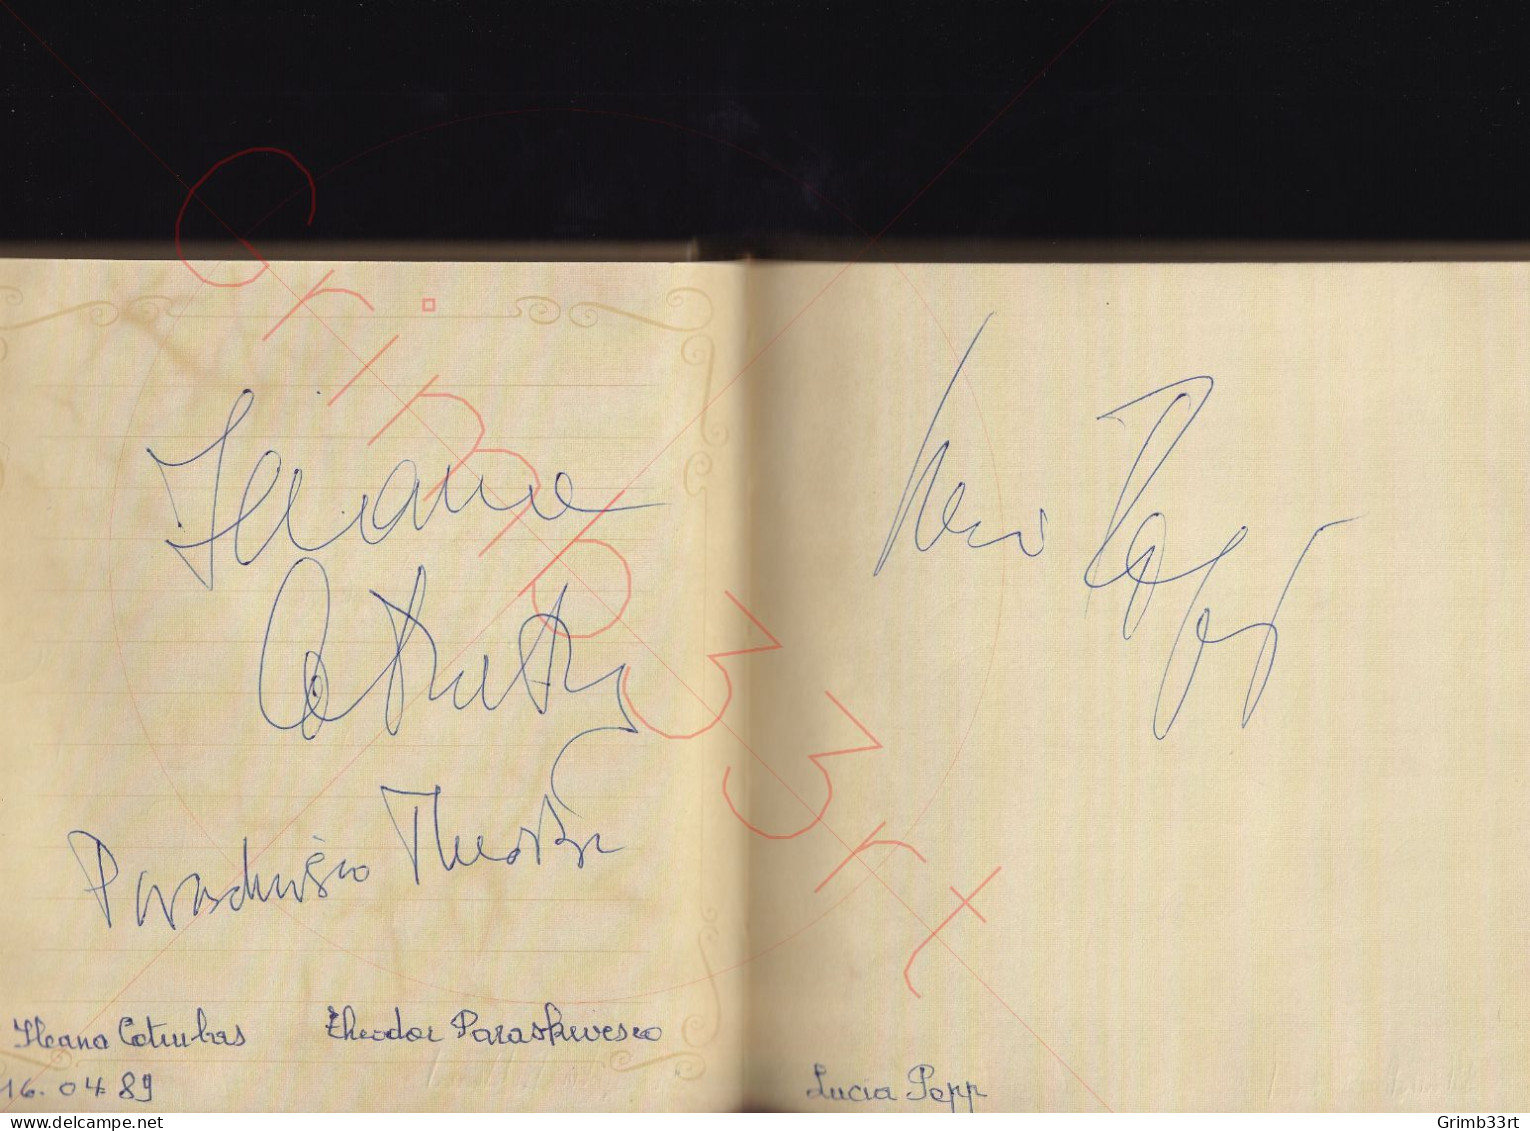 Ileana
Cotrubas
Paraschivesco Theodor
Ileana Cotrubas Theodor Paraskivesco
16.04.89
Lucia Popp
Lucia Popp
Grimb33rt
www.delcampe.net
Grimb33rt